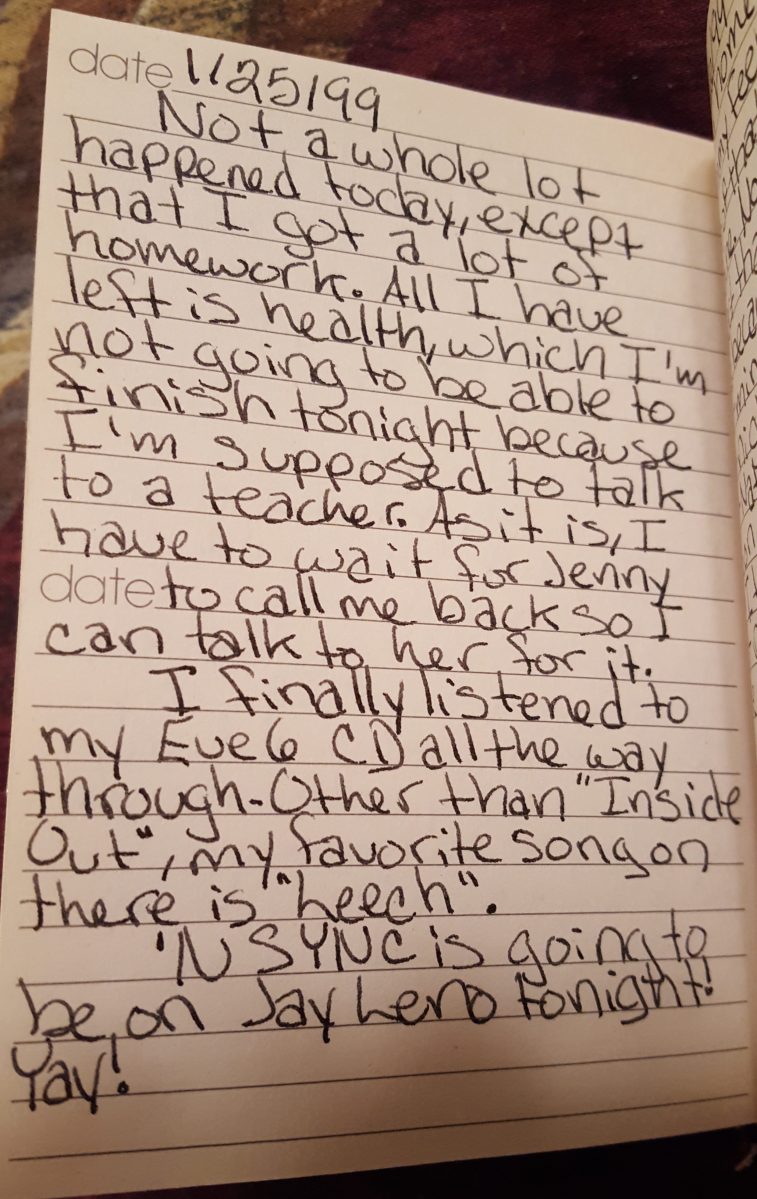 date 1/25/99
Not a whole lot
happened today, except
that I got a lot of
homework. All I have
left is health, which I'm
not going to be able to
finish tonight because
I'm supposed to talk
to a teacher. As it is, I
have to wait for Jenny
date to call me back so I
can talk to her for it.
I finally listened to
my Eve 6 CD all the way
through. Other than "Inside
Out", my favorite song on
there is "Leech".
'N SYNC is going to
be on Jay Leno tonight!
Yay!